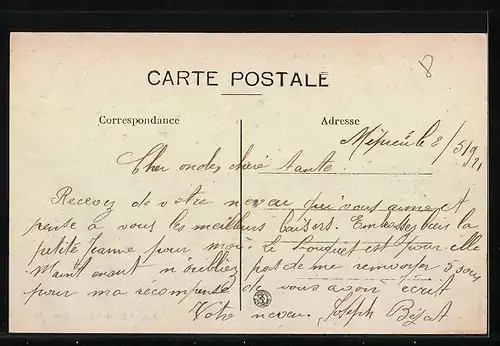 8
CARTE POSTALE
Correspondance
Adresse
le 8/5/921
Cher oncle chère tante
Recevez de votre neveu qui vous aime et
pense à vous les meilleurs baisers. Embrassez bien la
petite Jeanne pour moi. Le bouquet est pour elle
Maintenant n'oubliez pas de me renvoyer 5 sous
pour ma recompense de vous avoir écrit
Votre neveu. Joseph